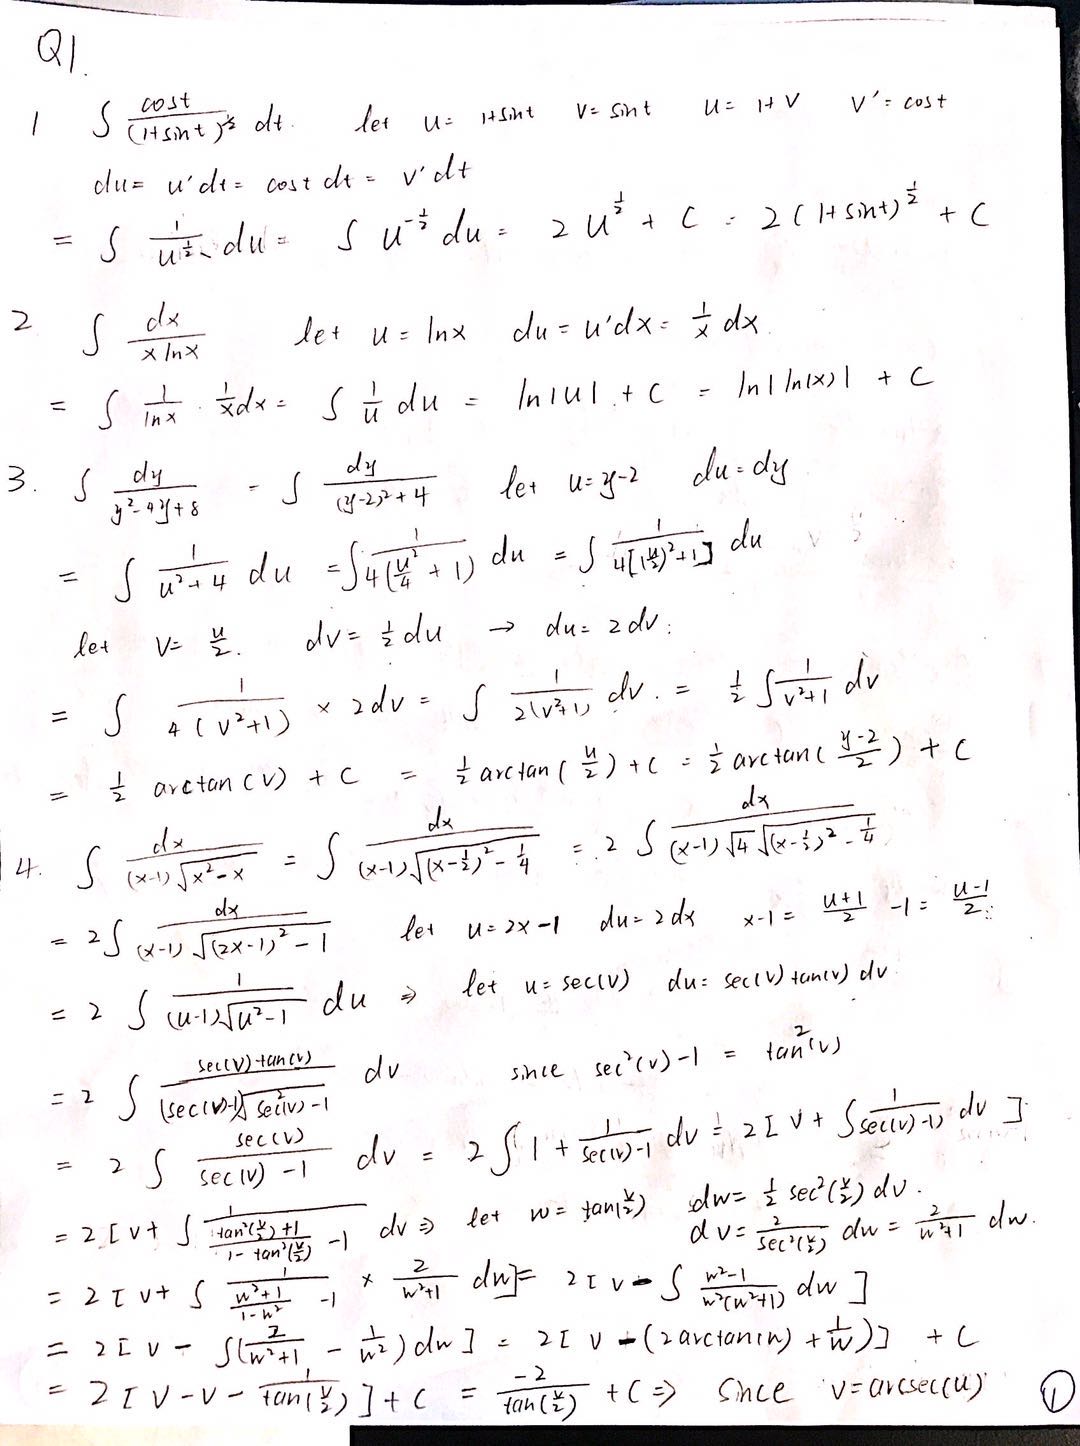 Q1.
1 ∫ cost/(1+sint)^½ dt. let u= 1+sint v= sint u= 1+v v'= cost
du= u'dt= cost dt = v'dt
= ∫ 1/u^½ du = ∫ u^-½ du = 2u^½ + C = 2(1+sint)^½ + C
2 ∫ dx/(x lnx) let u = lnx du = u'dx = 1/x dx
= ∫ 1/lnx · 1/x dx = ∫ 1/u du = ln|u| + C = ln|ln(x)| + C
3. ∫ dy/(y²-4y+8) = ∫ dy/((y-2)²+4) let u=y-2 du=dy
= ∫ 1/(u²+4) du = ∫ 1/(4(u²/4 + 1)) du = ∫ 1/(4[(u/2)²+1]) du
let v= u/2. dv= ½ du → du= 2dv:
= ∫ 1/(4(v²+1)) × 2dv = ∫ 1/(2(v²+1)) dv. = ½ ∫ 1/(v²+1) dv
= ½ arctan(v) + C = ½ arctan(u/2) + C = ½ arctan((y-2)/2) + C
4. ∫ dx/((x-1)√(x²-x)) = ∫ dx/((x-1)√((x-½)²-¼)) = 2 ∫ dx/((x-1)√4 √((x-½)²-¼))
= 2∫ dx/((x-1)√((2x-1)²-1)) let u=2x-1 du=2dx x-1= (u+1)/2 -1= (u-1)/2
= 2 ∫ 1/((u-1)√(u²-1)) du ⇒ let u=sec(v) du= sec(v)tan(v) dv
= 2 ∫ sec(v)tan(v)/((sec(v)-1)√(sec²(v)-1)) dv since sec²(v)-1 = tan²(v)
= 2 ∫ sec(v)/(sec(v)-1) dv = 2∫ 1 + 1/(sec(v)-1) dv = 2[v+ ∫ 1/(sec(v)-1) dv]
= 2[v+ ∫ 1/((tan²(v/2)+1)/(1-tan²(v/2)) -1) dv ⇒ let w= tan(v/2) dw= ½ sec²(v/2) dv.
dv= 2/sec²(v/2) dw = 2/(w²+1) dw.
= 2[v+ ∫ 1/((w²+1)/(1-w²) -1) × 2/(w²+1) dw] = 2[v - ∫ (w²-1)/(w²(w²+1)) dw]
= 2[v - ∫(2/(w²+1) - 1/w²) dw] = 2[v -(2arctan(w) + 1/w)] + C
= 2[v-v- 1/tan(v/2)] + C = -2/tan(v/2) + C ⇒ since v=arcsec(u)
1